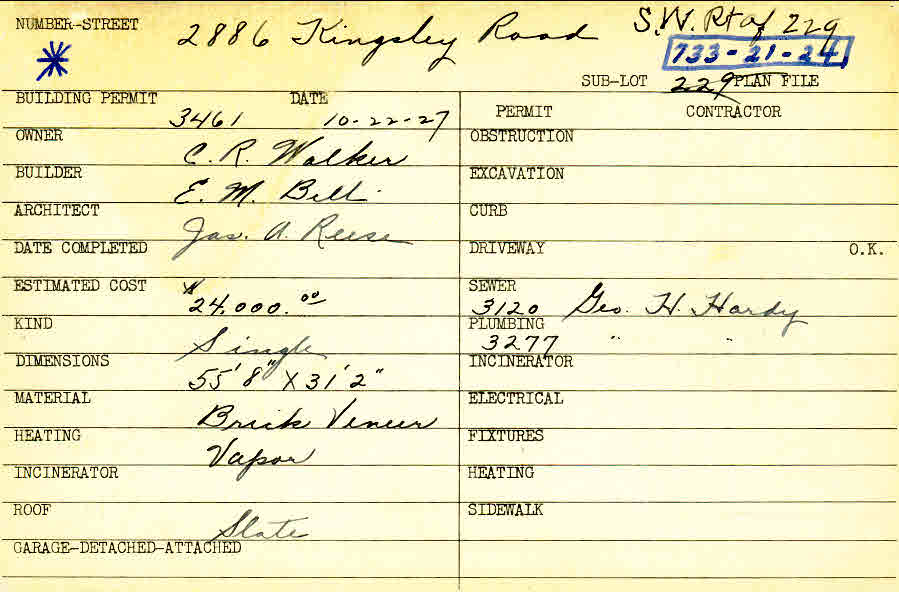 NUMBER-STREET 2886 Kingsley Road S.W. Pt of 229
733-21-24
SUB-LOT 229 PLAN FILE
BUILDING PERMIT 3461 DATE 10-22-27
PERMIT CONTRACTOR
OWNER C. R. Walker
OBSTRUCTION
BUILDER E. M. Bell
EXCAVATION
ARCHITECT Jas. A. Reese
CURB
DATE COMPLETED
DRIVEWAY O.K.
ESTIMATED COST $24,000.00
SEWER 3120 Geo. H. Hardy
KIND Single
PLUMBING 3277 " "
DIMENSIONS 55'8" X 31'2"
INCINERATOR
MATERIAL Brick Veneer
ELECTRICAL
HEATING Vapor
FIXTURES
INCINERATOR
HEATING
ROOF Slate
SIDEWALK
GARAGE-DETACHED-ATTACHED